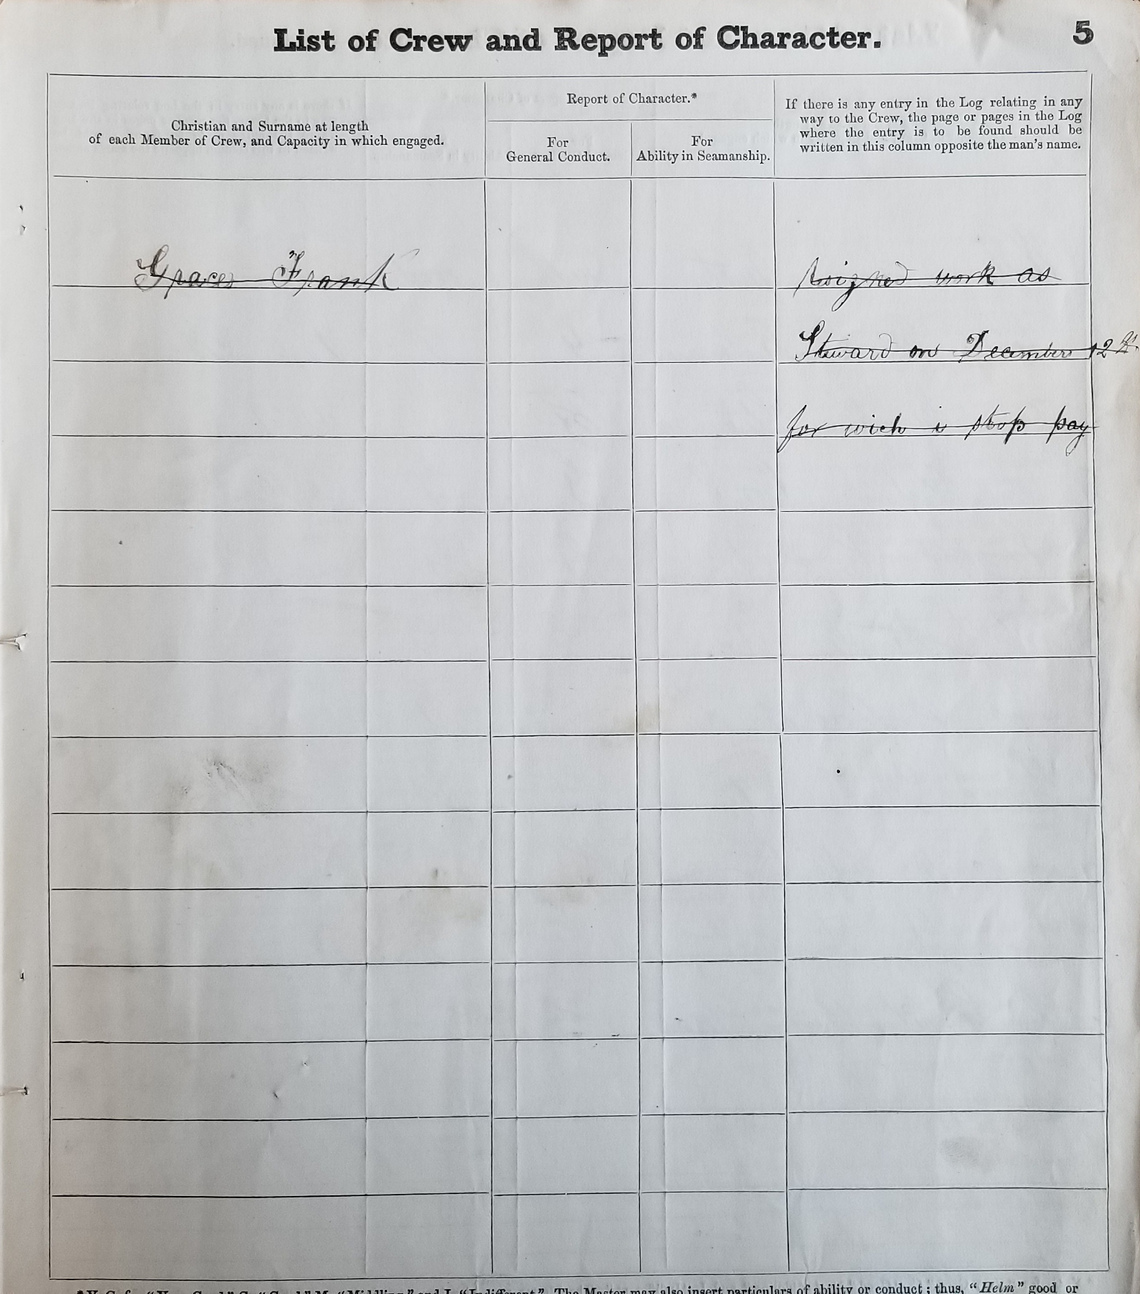 List of Crew and Report of Character.
5
Christian and Surname at length
of each Member of Crew, and Capacity in which engaged.
Report of Character.*
For
General Conduct.
For
Ability in Seamanship.
If there is any entry in the Log relating in any
way to the Crew, the page or pages in the Log
where the entry is to be found should be
written in this column opposite the man's name.
Frank
work as
Steward on December 12th
for wich i stop pay
The Master may also insert particulars of ability or conduct; thus, "Helm" good or